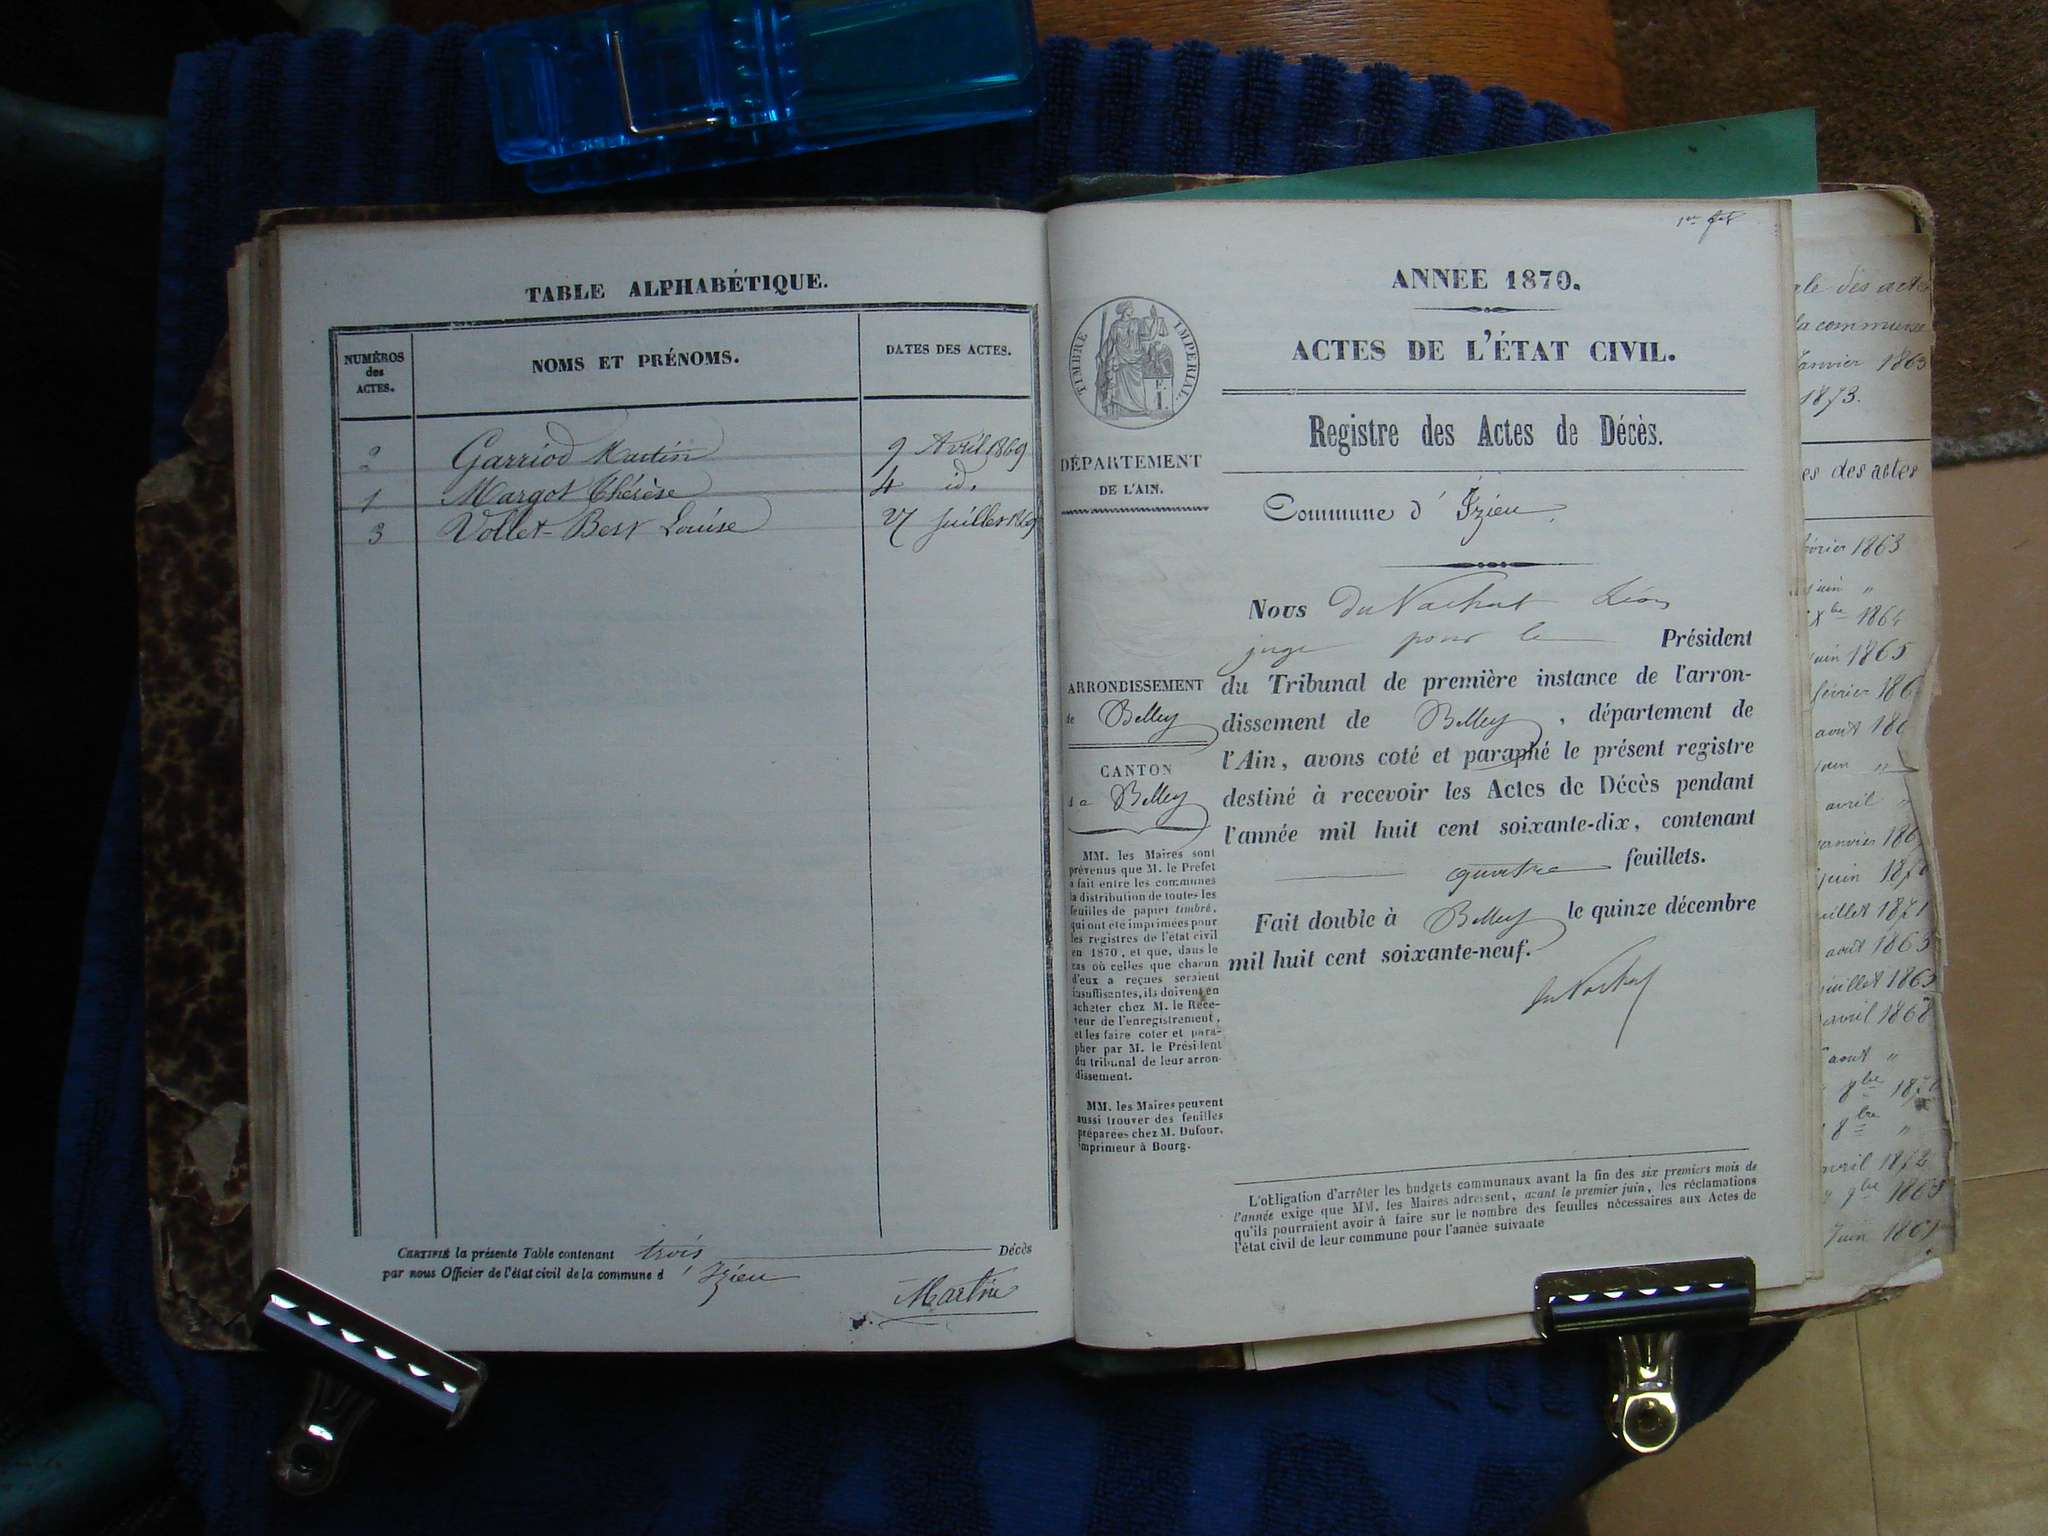 TABLE ALPHABÉTIQUE.
NUMÉROS
des
ACTES.
NOMS ET PRÉNOMS.
DATES DES ACTES.
2 Garriod Martin 9 Avril 1869
1 Margot Thérèse 4 id.
3 Vollet-Bert Louise 27 Juillet 1869
CERTIFIÉ la présente Table contenant trois Décès
par nous Officier de l'état civil de la commune d'Izieu
Martin
1er
ANNEE 1870.
ACTES DE L'ÉTAT CIVIL.
Registre des Actes de Décès.
Commune d'Izieu.
TIMBRE IMPÉRIAL
DÉPARTEMENT
DE L'AIN.
ARRONDISSEMENT
de Belley
CANTON
de Belley
MM. les Maires sont
prévenus que M. le Préfet
a fait entre les communes
la distribution de toutes les
feuilles de papier timbré,
qui ont été imprimées pour
les registres de l'état civil
en 1870, et que, dans le
cas où celles que chacun
d'eux a reçues seraient
insuffisantes, ils doivent en
acheter chez M. le Rece-
veur de l'enregistrement,
et les faire coter et para-
pher par M. le Président
du tribunal de leur arron-
dissement.
MM. les Maires peuvent
aussi trouver des feuilles
préparées chez M. Dufour,
imprimeur à Bourg.
Nous Du Vachat Léon
juge pour le Président
du Tribunal de première instance de l'arron-
dissement de Belley, département de
l'Ain, avons coté et paraphé le présent registre
destiné à recevoir les Actes de Décès pendant
l'année mil huit cent soixante-dix, contenant
quatre feuillets.
Fait double à Belley le quinze décembre
mil huit cent soixante-neuf.
du Vachat
L'obligation d'arrêter les budgets communaux avant la fin des six premiers mois de
l'année exige que MM. les Maires adressent, avant le premier juin, les réclamations
qu'ils pourraient avoir à faire sur le nombre des feuilles nécessaires aux Actes de
l'état civil de leur commune pour l'année suivaate
des actes
la commune
Janvier 1863
1873.
des actes
février 1863
juin "
xbre 1864
juin 1865
février
août
juin "
avril "
janvier
juin 1870
juillet 1871
août 1863
juillet 1863
avril 1868
août "
8bre
8bre "
avril 1872
9bre 1868
Juin